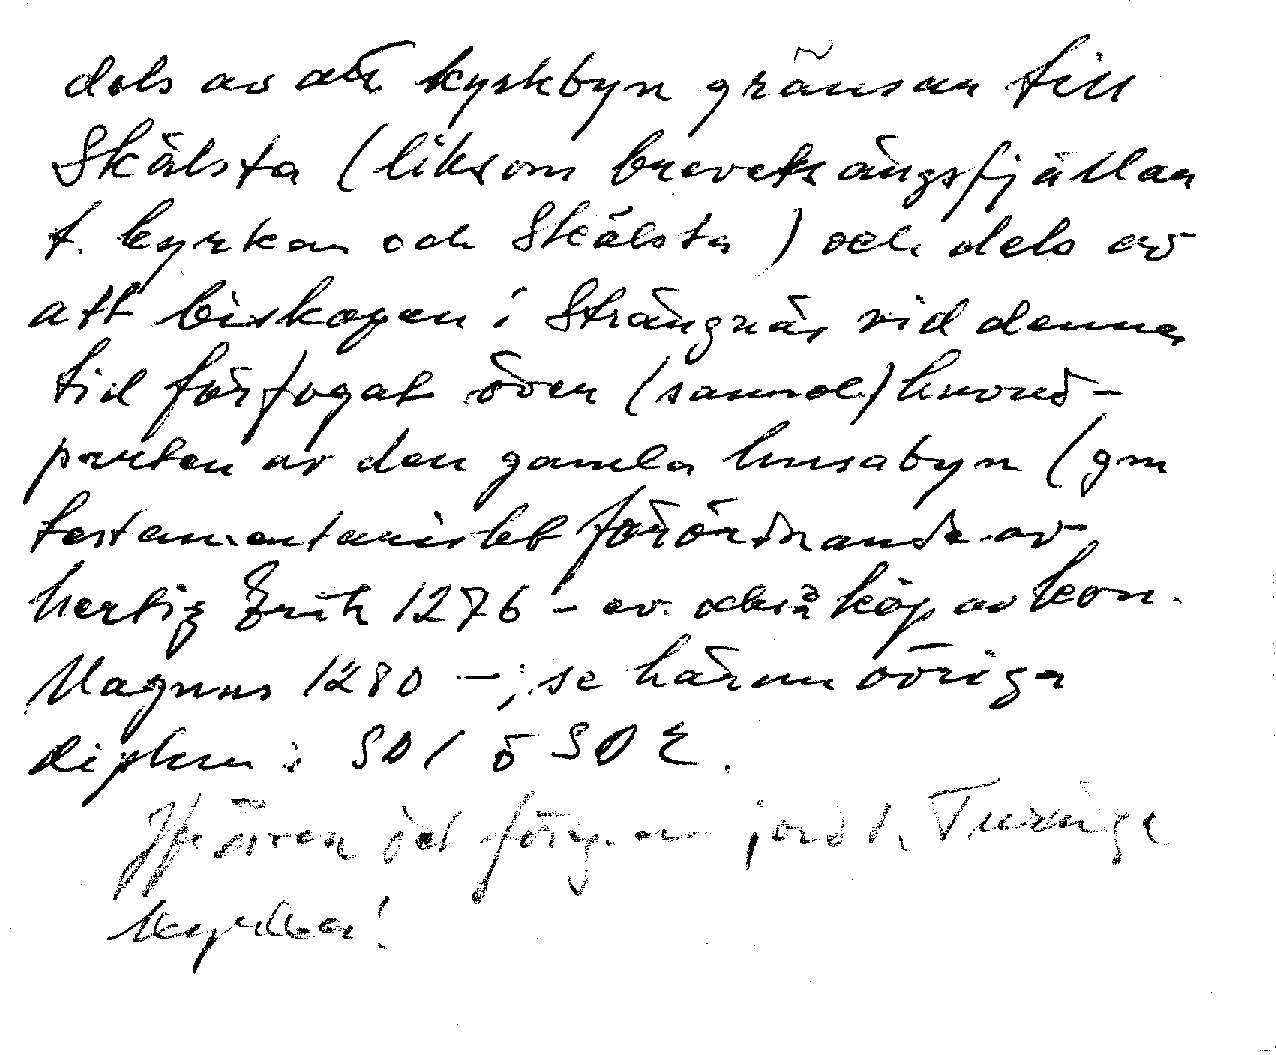 dels av att kyrkbyn gränsar till
Skälsta (liksom brevets ängsfjällar
t. kyrkan och Skälsta) och dels av
att biskopen i Strängnäs vid denna
tid förfogat över (sannol) huvud-
parten av den gamla husabyn (gm
testamentariskt förordnande av
hertig Erik 1276 - ev. också köp av kon.
Magnus 1280 -; se härom övriga
diplom i SD 1 o SD 2.
Jfr även jord t. Turinge
kyrka!